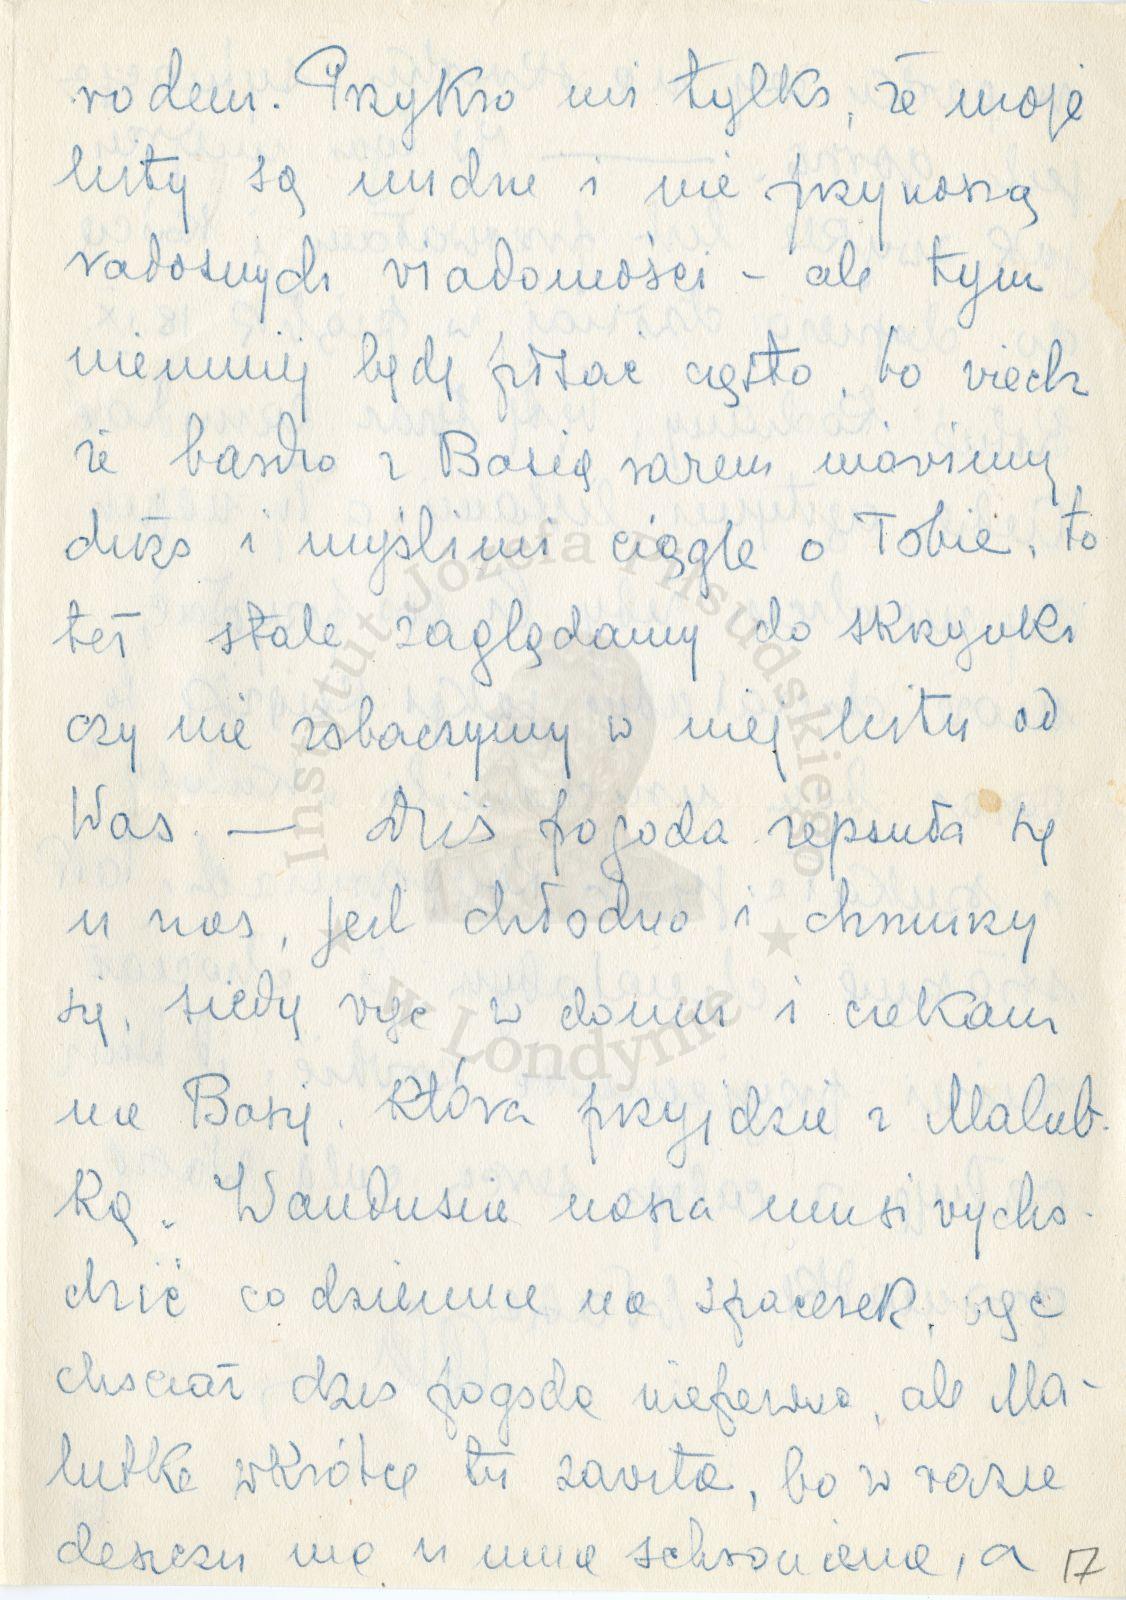 rodem. Przykro mi tylko, że moje
listy są nudne i nie przynoszą
radosnych wiadomości – ale tym
niemniej będę pisać często, bo wiedz
że bardzo z Basią razem mówimy
dużo i myślimi ciągle o Tobie, to
też stale zaglądamy do skrzynki
czy nie zobaczymy w niej listu od
Was. — Dziś pogoda zepsuła się
u nas, jest chłodno i chmurzy
się, siedzę więc w domu i czekam
na Basię, która przyjdzie z Malut-
ką. Wandusia nasza musi wycho-
dzić codziennie na spacerek, więc
chociaż dziś pogoda niepewna, ale Ma-
lutka wkrótce tu zawita, bo w razie
deszczu ma u mnie schronienie, a 17
Instytut Józefa Piłsudskiego
★ w Londynie ★